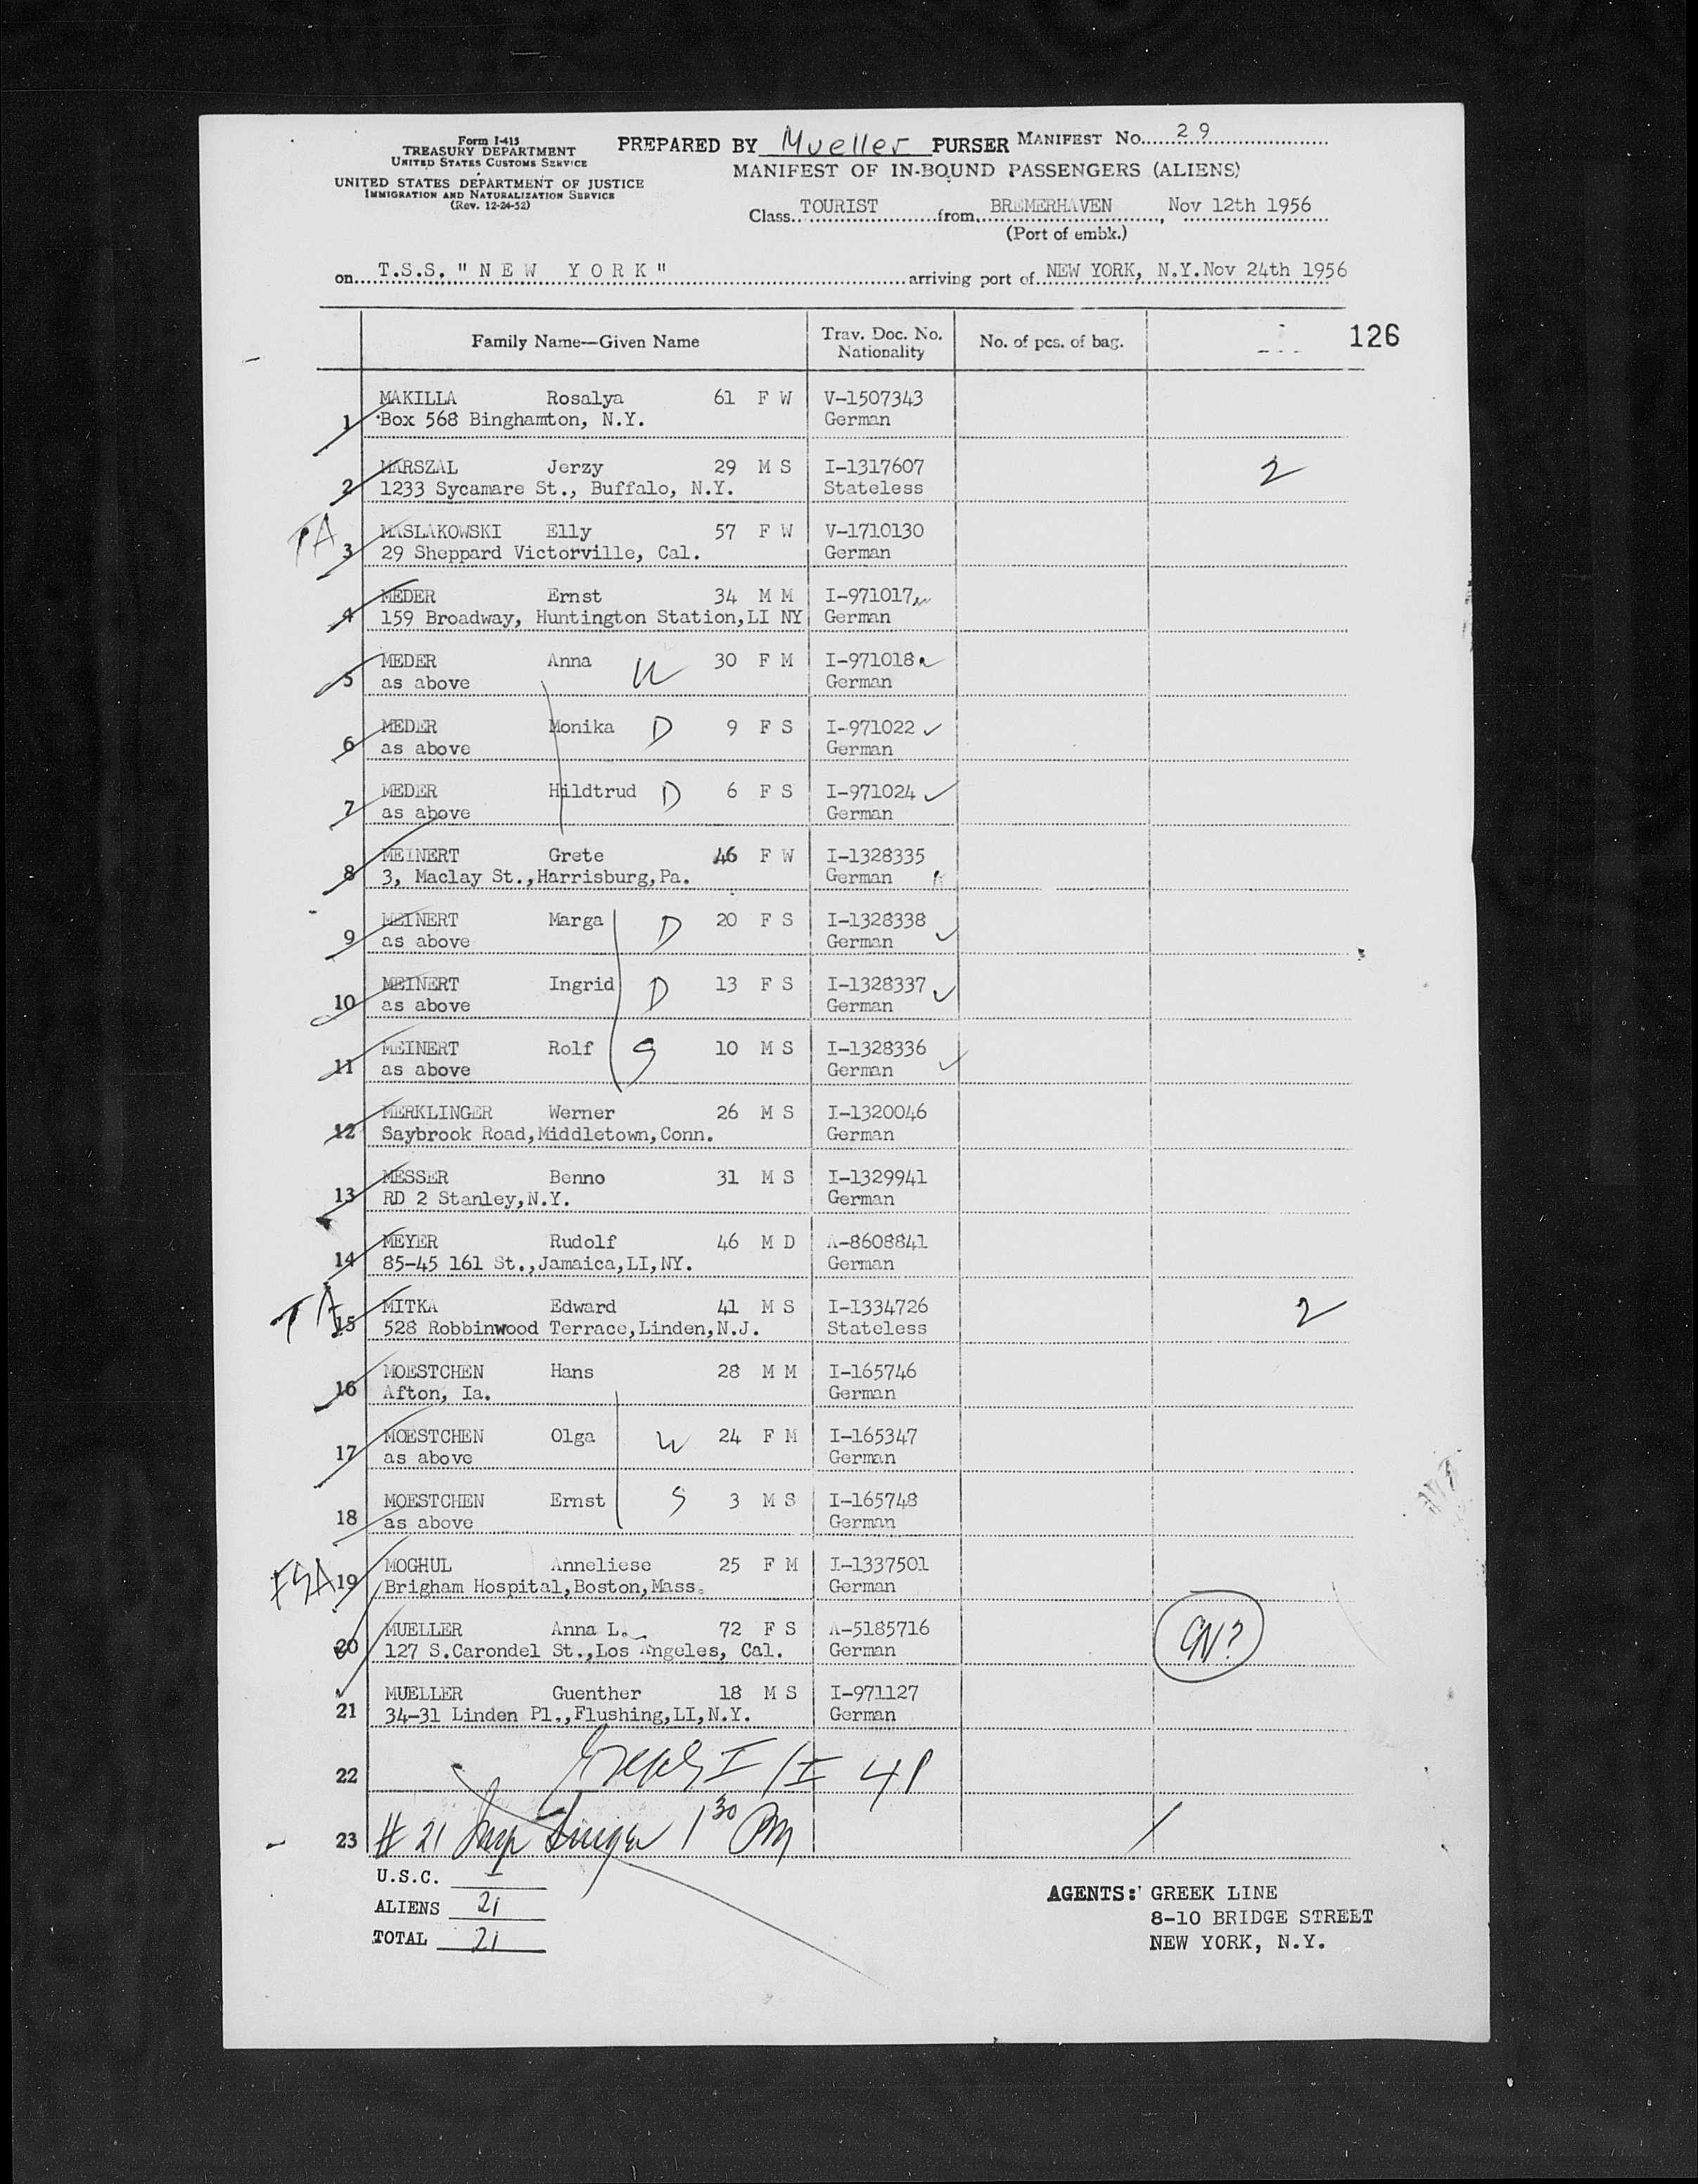 Form I-415
TREASURY DEPARTMENT
UNITED STATES CUSTOMS SERVICE
UNITED STATES DEPARTMENT OF JUSTICE
IMMIGRATION AND NATURALIZATION SERVICE
(Rev. 12-24-52)
PREPARED BY Mueller PURSER MANIFEST No. 29
MANIFEST OF IN-BOUND PASSENGERS (ALIENS)
Class TOURIST from BREMERHAVEN, Nov 12th 1956
(Port of embk.)
on T.S.S. "NEW YORK" arriving port of NEW YORK, N.Y. Nov 24th 1956
Family Name—Given Name Trav. Doc. No. Nationality No. of pcs. of bag. 126
1 MAKILLA Rosalya 61 F W V-1507343
Box 568 Binghamton, N.Y. German
2 MARSZAL Jerzy 29 M S I-1317607 2
1233 Sycamare St., Buffalo, N.Y. Stateless
TA 3 MASLAKOWSKI Elly 57 F W V-1710130
29 Sheppard Victorville, Cal. German
4 MEDER Ernst 34 M M I-971017
159 Broadway, Huntington Station,LI NY German
5 MEDER Anna W 30 F M I-971018
as above German
6 MEDER Monika D 9 F S I-971022 ✓
as above German
7 MEDER Hildtrud D 6 F S I-971024 ✓
as above German
8 MEINERT Grete 46 F W I-1328335
3, Maclay St.,Harrisburg,Pa. German
9 MEINERT Marga D 20 F S I-1328338 ✓
as above German
10 MEINERT Ingrid D 13 F S I-1328337 ✓
as above German
11 MEINERT Rolf S 10 M S I-1328336 ✓
as above German
12 MERKLINGER Werner 26 M S I-1320046
Saybrook Road,Middletown,Conn. German
13 MESSER Benno 31 M S I-1329941
RD 2 Stanley,N.Y. German
14 MEYER Rudolf 46 M D A-8608841
85-45 161 St.,Jamaica,LI,NY. German
TA 15 MITKA Edward 41 M S I-1334726 2
528 Robbinwood Terrace,Linden,N.J. Stateless
16 MOESTCHEN Hans 28 M M I-165746
Afton, Ia. German
17 MOESTCHEN Olga W 24 F M I-165347
as above German
18 MOESTCHEN Ernst S 3 M S I-165748
as above German
FSA 19 MOGHUL Anneliese 25 F M I-1337501
Brigham Hospital,Boston,Mass. German
20 MUELLER Anna L. 72 F S A-5185716
127 S.Carondel St.,Los Angeles, Cal. German
21 MUELLER Guenther 18 M S I-971127
34-31 Linden Pl.,Flushing,LI,N.Y. German
22
23 # 21 1 30 PM
U.S.C.
ALIENS 21
TOTAL 21
AGENTS: GREEK LINE
8-10 BRIDGE STREET
NEW YORK, N.Y.